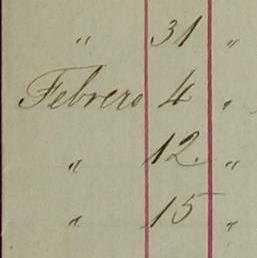 " 31 "
Febrero 4 "
" 12. "
" 15 "